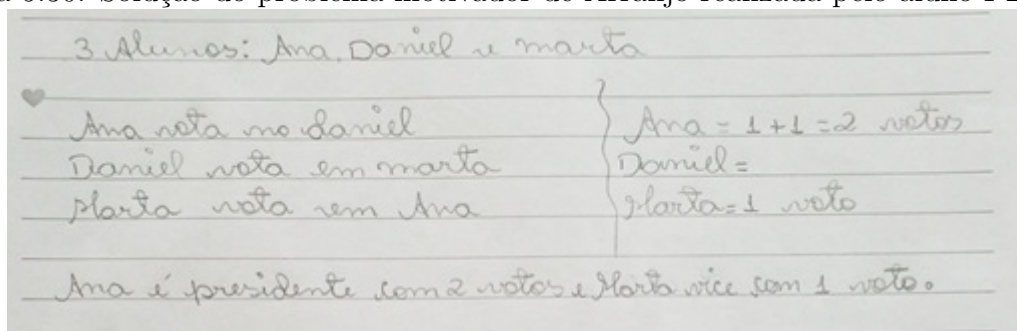 3 Alunos: Ana, Daniel e marta
Ana vota no daniel
Daniel vota em marta
Marta vota em Ana
Ana = 1 + 1 = 2 votos
Daniel =
Marta = 1 voto
Ana é presidente com 2 votos e Marta vice com 1 voto.